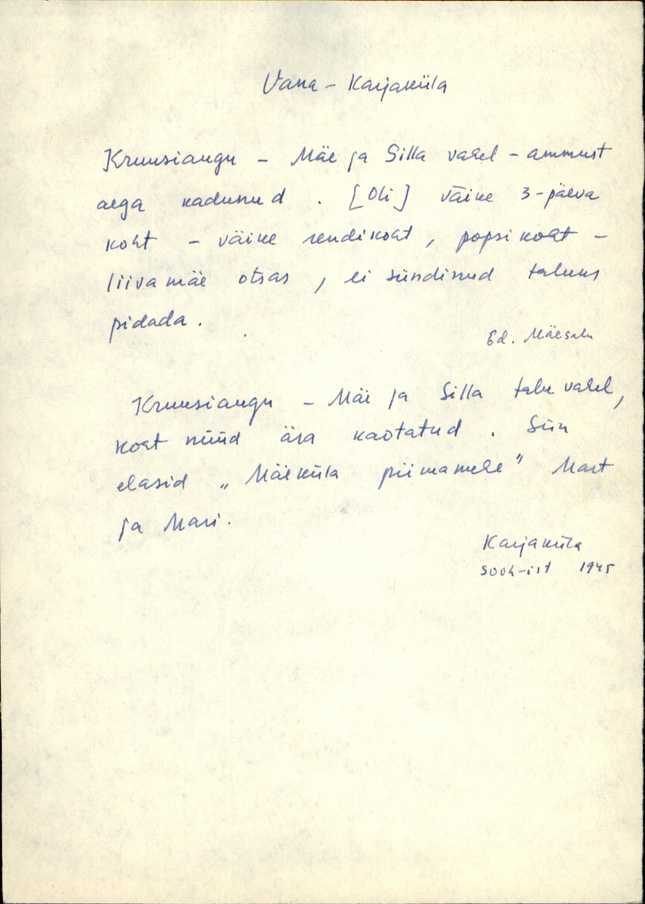 Vana - Karjaküla
Kruusiaugu - Mäe ja Silla vahel - ammust
aega kadunud. [Oli] väike 3-päeva
koht - väike rendikoht, popsikoht -
liivamäe otsas, ei sündinud taluks
pidada.
Ed. Mäesalu
Kruusiaugu - Mäe ja Silla talu vahel,
koht nüüd ära kaotatud. Siin
elasid „Mäeküla piimamehe" Mart
ja Mari.
Karjaküla
1945